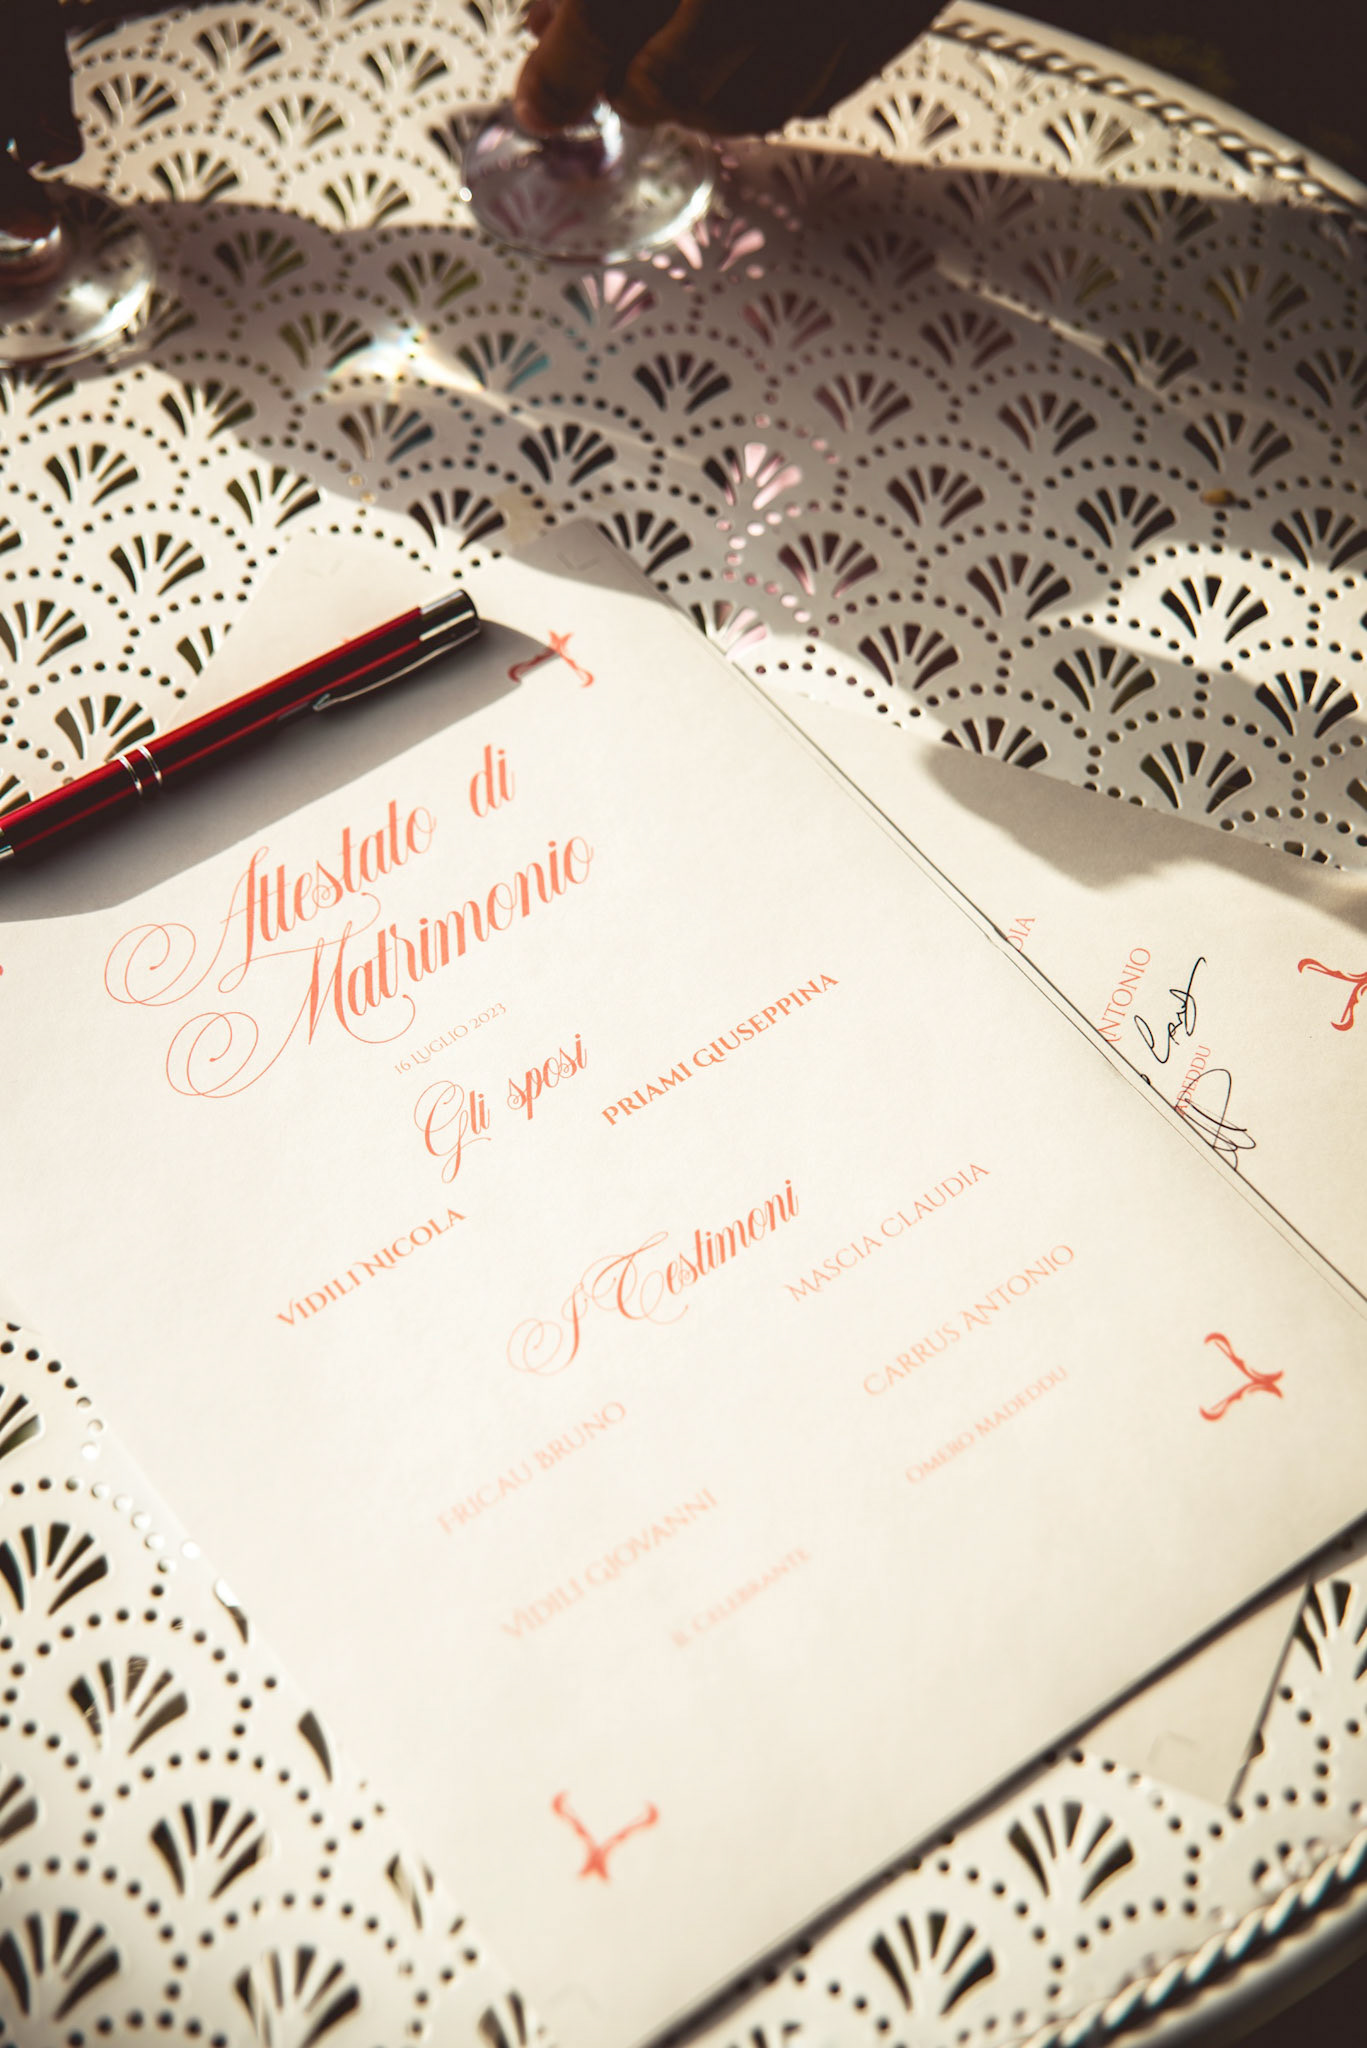 Attestato di
Matrimonio
16 LUGLIO 2023
Gli sposi
VIDILI NICOLA
PRIAMI GIUSEPPINA
I Testimoni
FRICAU BRUNO
MASCIA CLAUDIA
VIDILI GIOVANNI
CARRUS ANTONIO
IL CELEBRANTE
OMERO MADEDDU
DIA
ANTONIO
ADEDDU